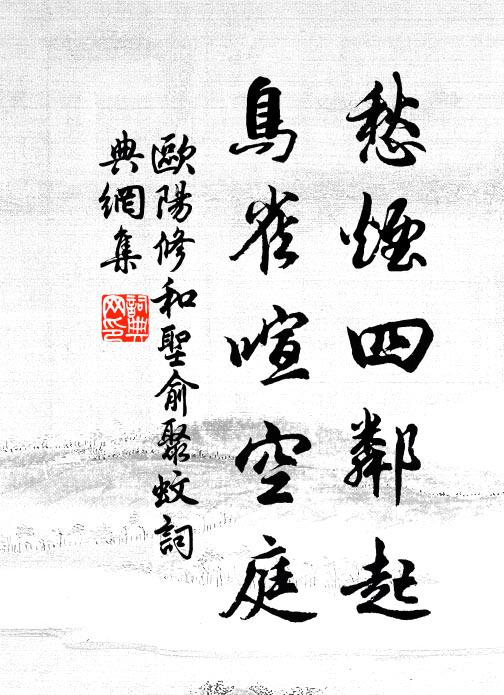 愁煙四鄰起
鳥雀喧空庭
歐陽修和聖俞聚蚊詞
典網集
詞典
网印